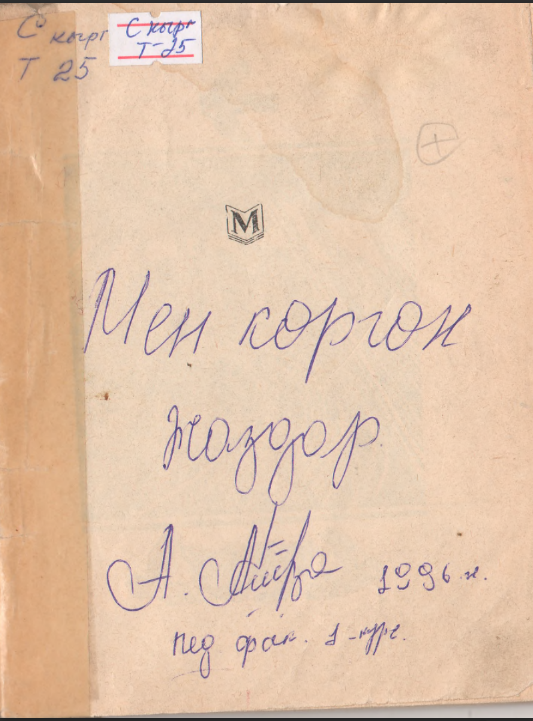 С кырг
Т 25
С кырг
Т-25
М
Мен коргон
жаздар
А.
1996 ж.
пед фак. 1-курс.